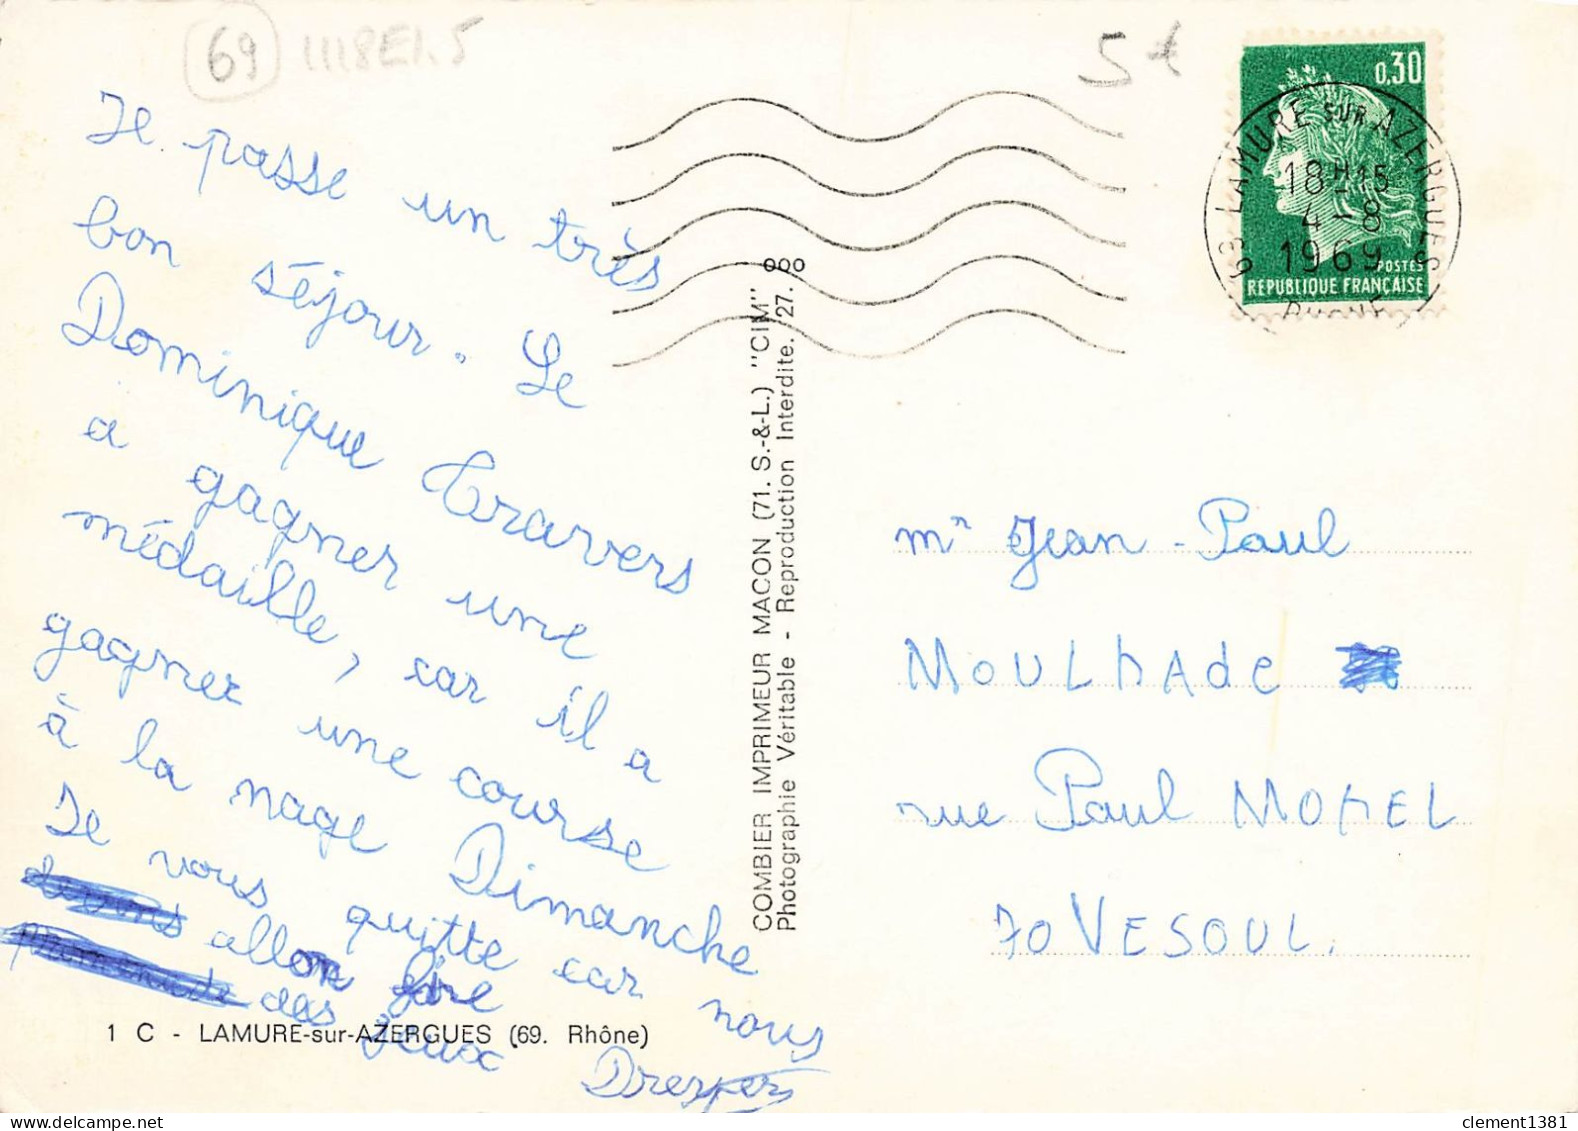 69 1118E1.5
5€
0,30
POSTES
REPUBLIQUE FRANÇAISE
69 LAMURE SUR AZERGUES
18H15
4-8
1969
RHONE
Je passe un très
bon séjour. Le
Dominique Travers
a gagner une
médaille, car il a
gagner une course
à la nage Dimanche
Je vous quitte car nous
allon faire
des jeux
1 C - LAMURE-sur-AZERGUES (69. Rhône)
COMBIER IMPRIMEUR MACON (71. S.-&-L.) "CIM"
Photographie Véritable - Reproduction Interdite. 27.
mr Jean-Paul
MOULHAde
rue Paul MOREL
70 VESOUL.
clement1381